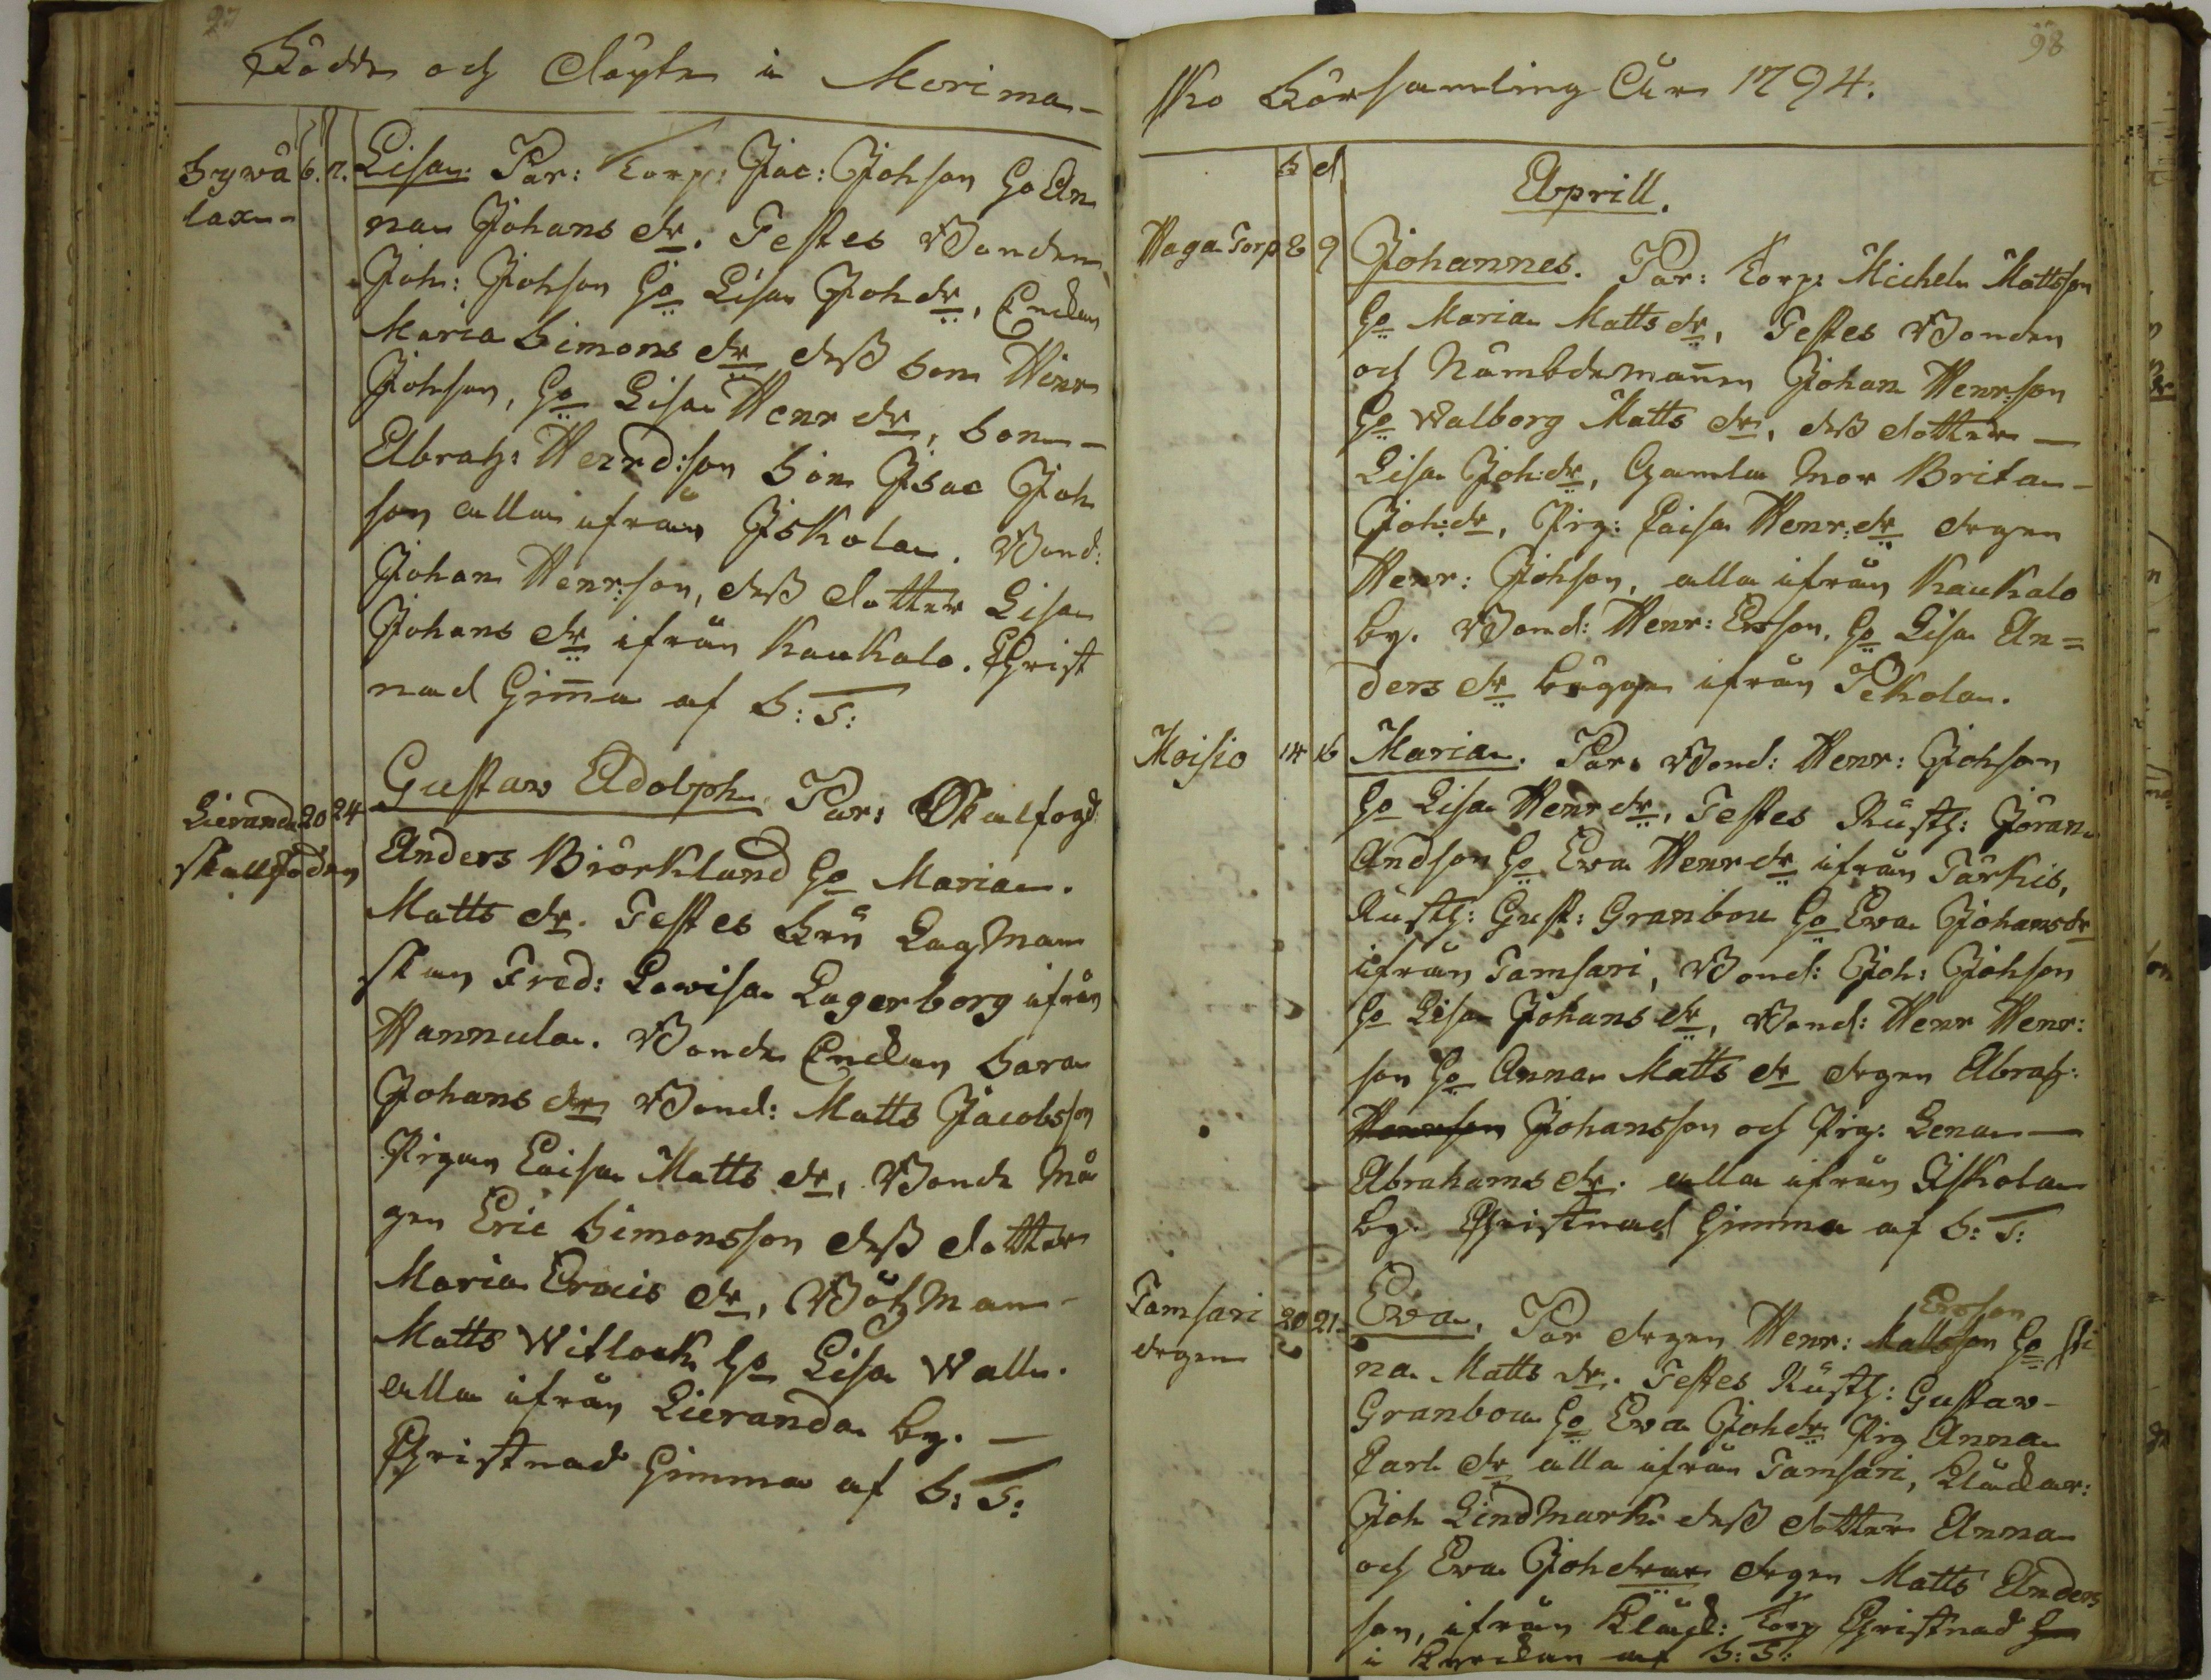 97
Födde och Döpte i Merima-
Sywä 6. 7. Lisa. Par: Torp: Jac: Johson Ho An
laxe- na Johans dr. Testes Bonden
Joh: Johson Ho Lisa Joh dr, Enckan
Maria Simons dr dess Son Henr
Johson, Ho Lisa Henr dr, Son-
Abrah: Henrd:son Son Isac Joh
son alla ifrån Iskola. Bond:
Johan Henr:son, dess dotter Lisa
Johans dr ifrån Kaukalo. Christ
nad Hima af S: T:
Lieranda 20 24 Gustav Adolph. Par: Skalfogd:
Skallfogden Anders Biörklund Ho Maria
Matts dr. Testes Fru Lagman
skan Fred: Lovisa Lagerborg ifrån
Hannula. Bonde Enckan Sara
Johans dr Bond: Matts Jacobsson
Pigan Caisa Matts dr, Bonde Må
gen Eric Simonsson dess dotter
Maria Ericis dr, Båtzman
Matts Witlock Ho Lisa Wall.
alla ifrån Lieranda by. —
Christnad Himma af S: T:
98
sko Församling År 1794.
F D
Aprill.
Haga Torp 8 9 Johannes. Par: Torp: Michel Mattsson
Ho Maria Matts dr, Testes Bonden
och Nämbdemanen Johan Henr:son
Ho Walborg Matts dr, dess dotter —
Lisa Joh:dr, Gamla Mor Brita
Joh:dr, Pig: Caisa Henr:dr drgen
Henr: Johson, alla ifrån Kaukalo
by. Bond: Henr: Ersson, Ho Lisa An=
ders dr bägge ifrån Pekola.
Moisio 14 16 Maria. Par: Bond: Henr: Johson
Ho Lisa Henr dr, Testes Rusth: Jöran
Andson Ho Eva Henr dr ifrån Tärkis,
Rusth: Gust: Granbou Ho Eva Johans dr
ifrån Tamsari, Bond: Joh: Johson
Ho Lisa Johans dr, Bond: Henr Henr:
son Ho Anna Matts dr drgen Abrah:
Henrson Johansson och Pig: Lena —
Abrahams dr. alla ifrån Iskola
by. Christnad Himma af S: T:
Tamsari 20 21 Eva. Par drgen Henr: Mattsson Ersson Ho Sti
drgen na Matts dr. Testes Rusth: Gustav-
Granbou Ho Eva Joh dr Pig Anna
Carl dr alla ifrån Tamsari, Kläckar:
Joh Lindmark dess dotter Anna
och Eva Joh drar drgen Matts Anders
son, ifrån Kläck: Torp Christnad
i Kyrckan af S: T: